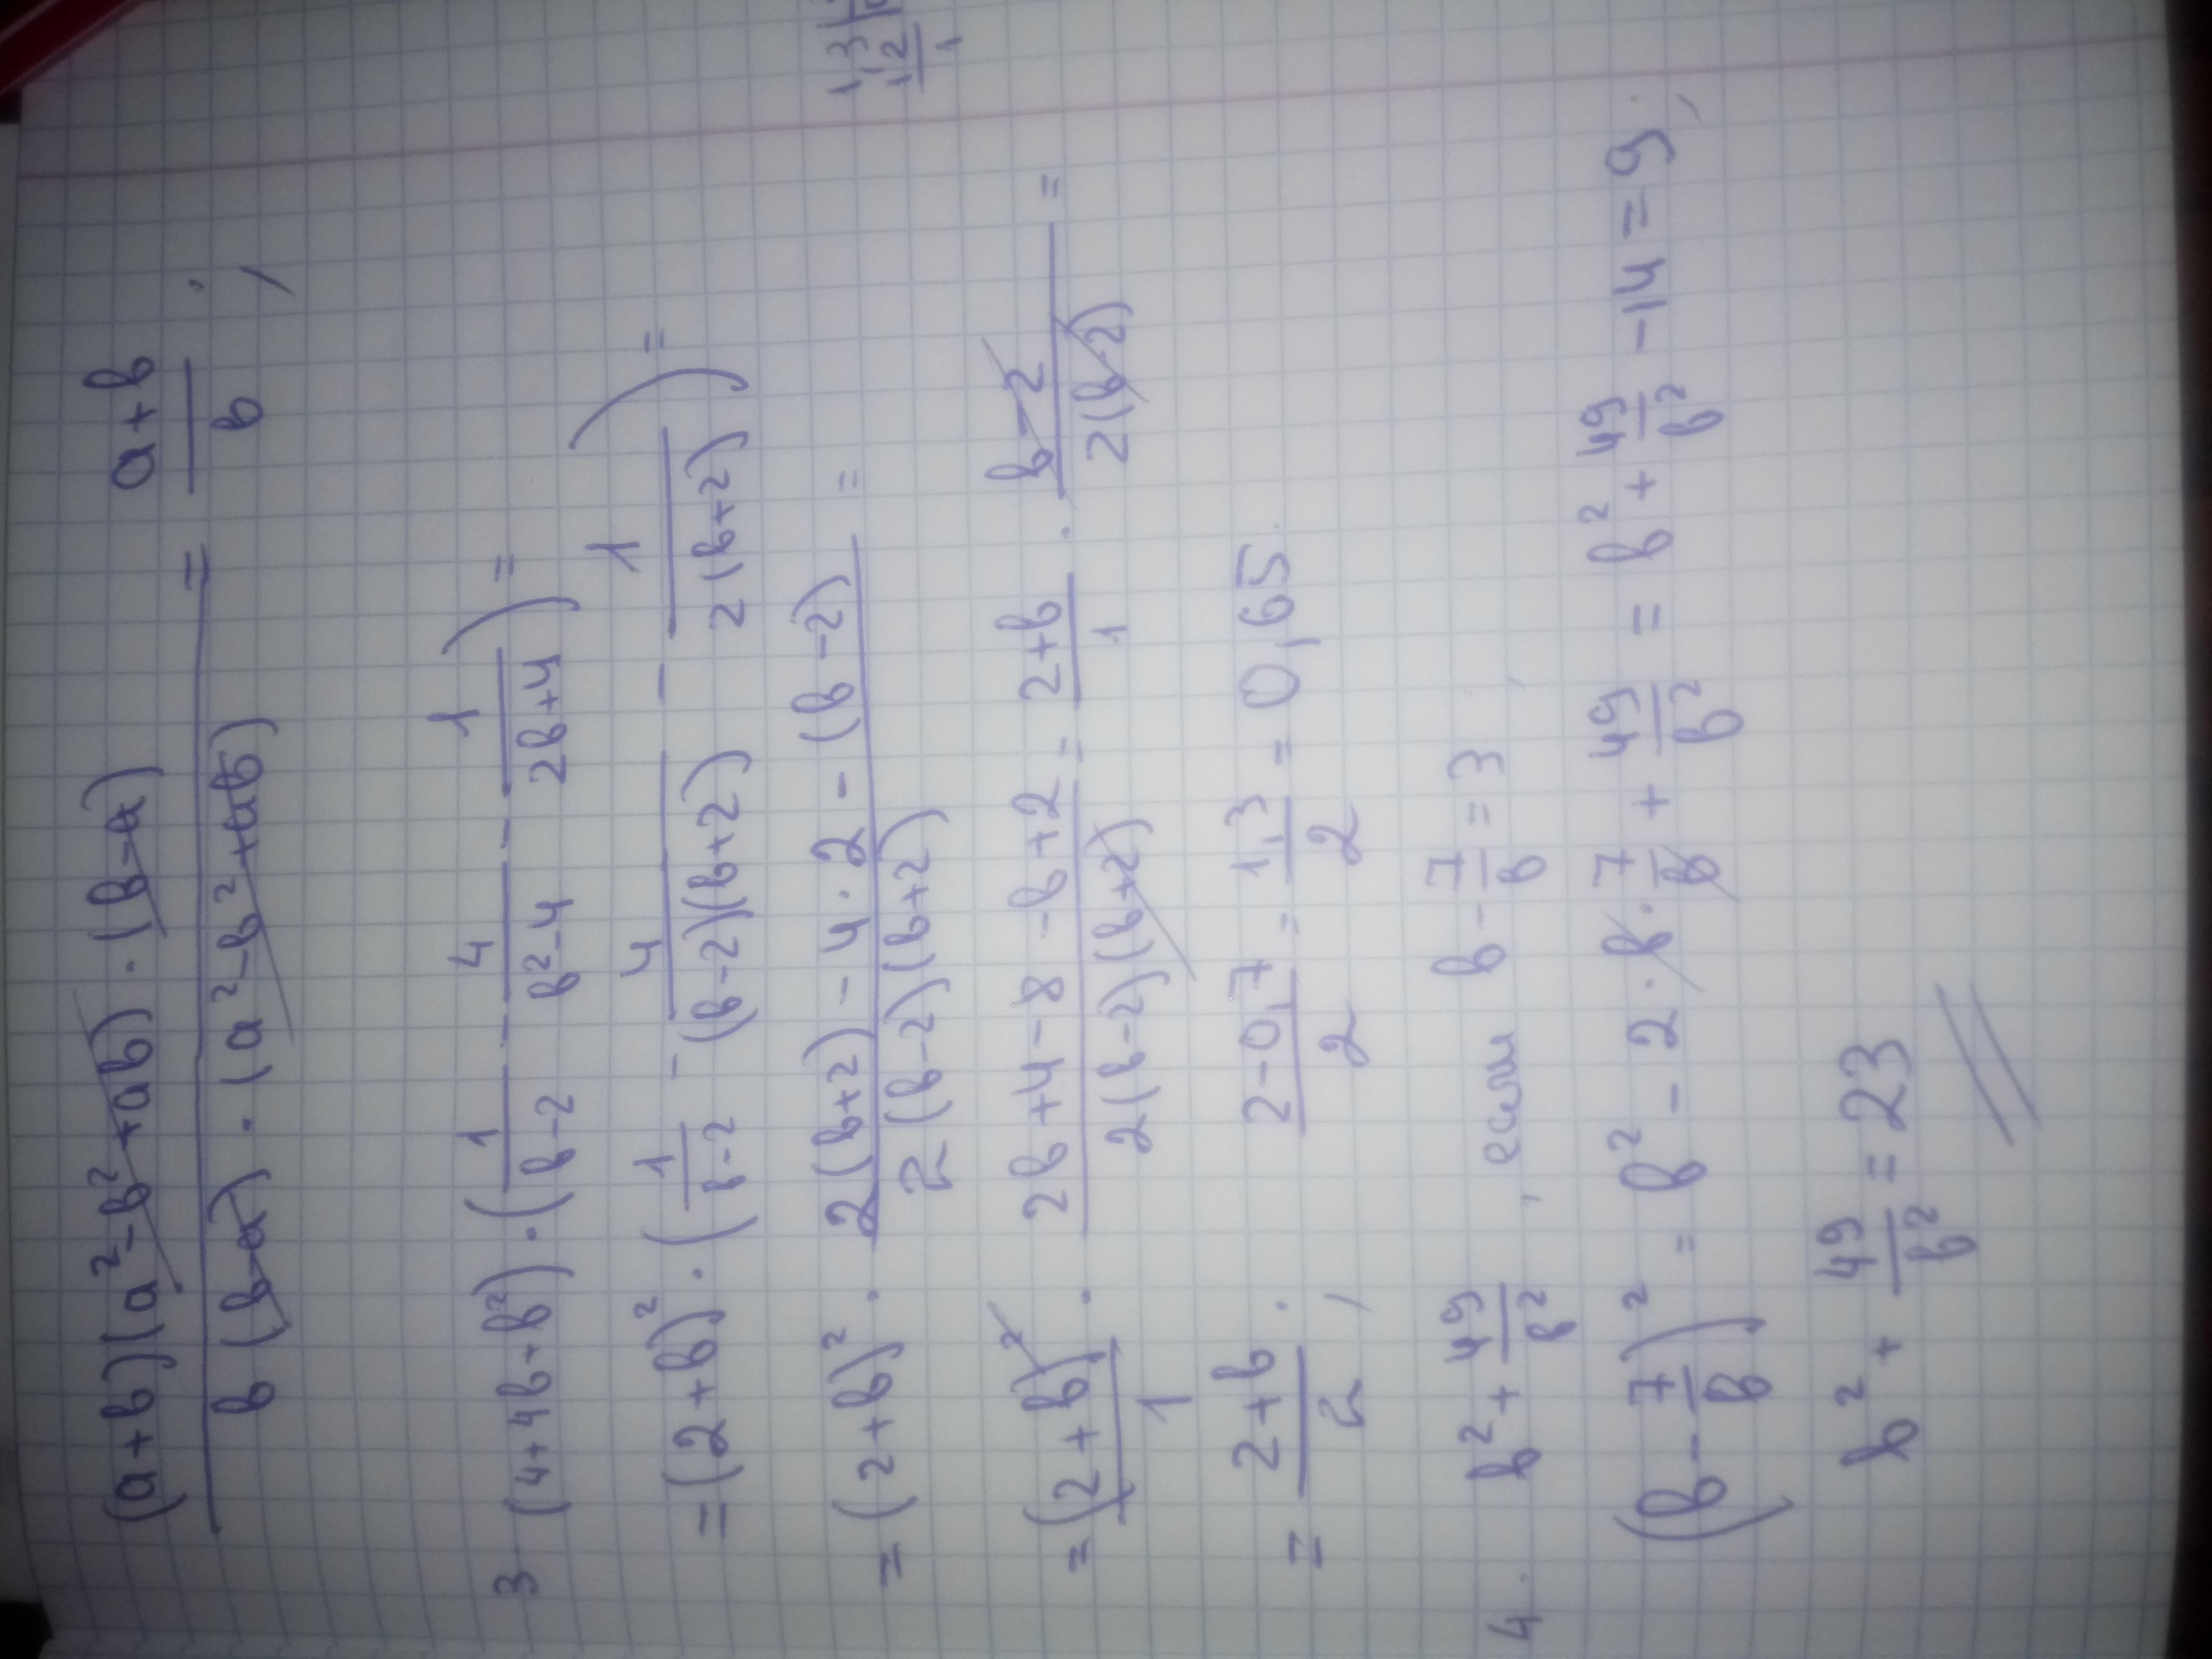 (a+b)(a²-b²+ab)·(b-a) / b(b-a)·(a²-b²+ab) = a+b / b ;
3 (4+4b+b²)·(1/b-2 - 4/b²-4 - 1/2b+4) =
=(2+b)²·(1/b-2 - 4/(b-2)(b+2) - 1/2(b+2)) =
=(2+b)²· 2(b+2)-4·2-(b-2) / 2(b-2)(b+2) =
=(2+b)²/1 · 2b+4-8-b+2 / 2(b-2)(b+2) = 2+b/1 · b-2 / 2(b-2) =
= 2+b/2 ; 2-0,7/2 = 1,3/2 = 0,65
4. b²+49/b², если b-7/b=3,
(b-7/b)² = b²-2·b·7/b+49/b² = b²+49/b²-14=9;
b²+49/b²=23